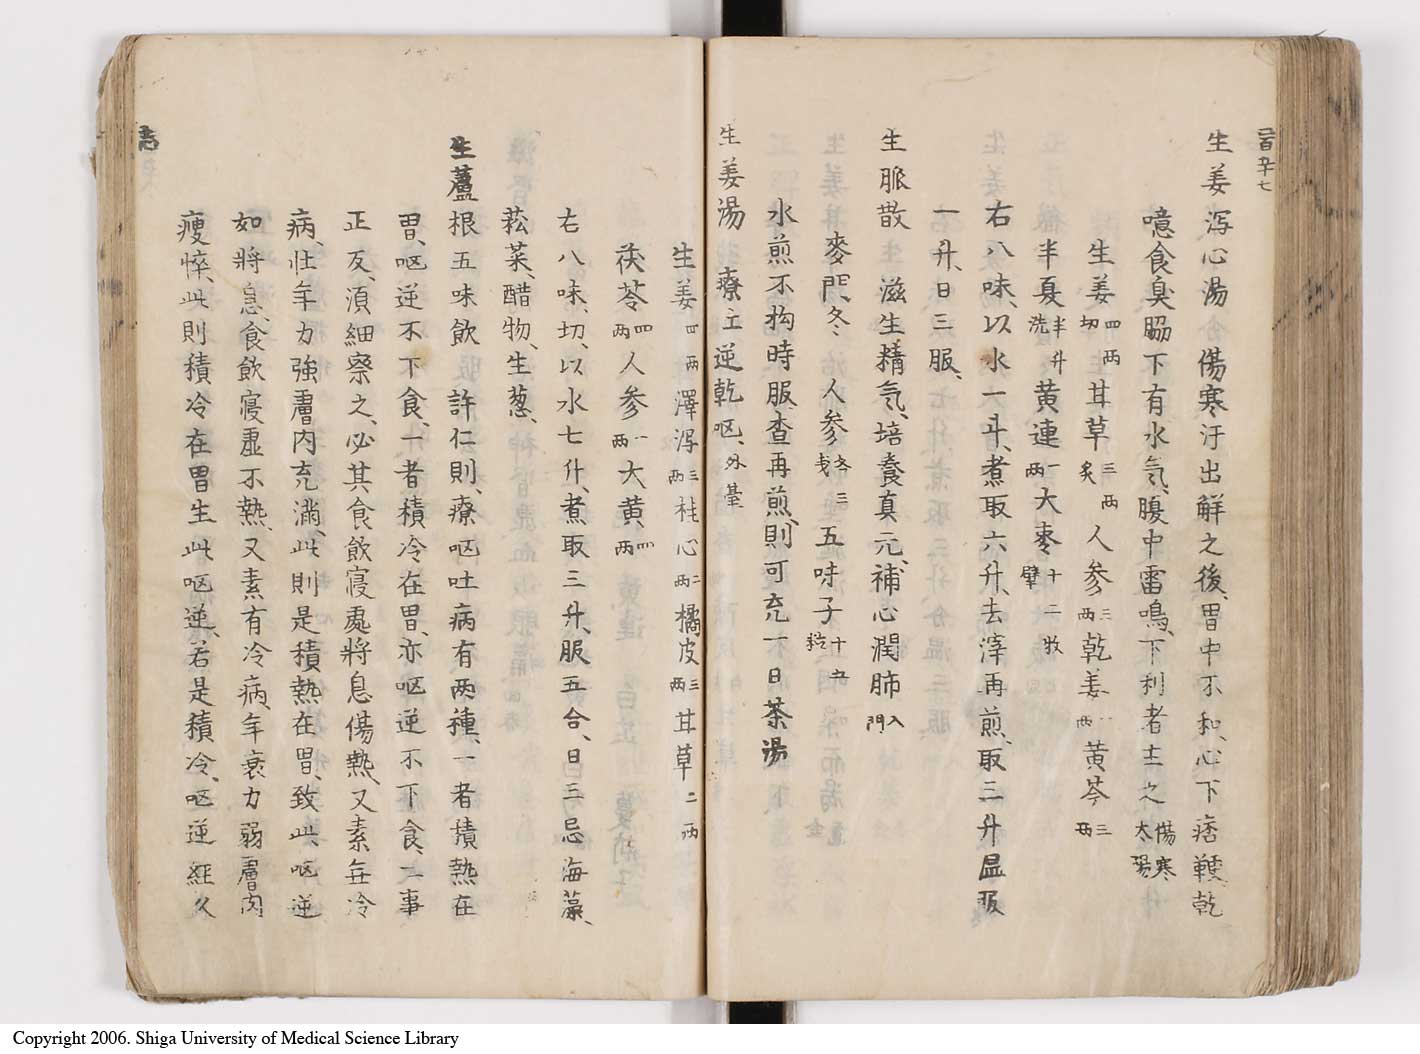 百卒七
生姜瀉心湯 傷寒汗出解之後、胃中不和、心下痞鞕、乾
噫食臭、脇下有水氣、腹中雷鳴、下利者主之 傷寒太陽
生姜 四両切 甘草 三両炙 人参 三両 乾姜 一両 黄芩 三両
半夏 半升洗 黄連 一両 大枣 十二枚擘
右八味、以水一斗、煮取六升、去滓再煎、取三升、温服
一升、日三服、
生脈散 滋生精気、培養真元、補心潤肺 入門
麥門冬 人参 各三戋 五味子 十五粒
水煎不拘時服、査再煎、則可充一日茶湯
生姜湯 療上逆乾呕、外臺
生姜 四両 澤瀉 三両 桂心 二両 橘皮 三両 甘草 二両
茯苓 四両 人参 一両 大黄 四両
右八味、切、以水七升、煮取三升、服五合、日三忌海藻、
菘菜、醋物、生葱、
生蘆根五味飲 許仁則、療呕吐病有两種、一者積熱在
胃、呕逆不下食、一者積冷在胃、亦呕逆不下食、二事
正反、須細察之、必其食飲寝處將息傷熱、又素無冷
病、壮年力強、膚肉充満、此則是積熱在胃、致此呕逆
如將息食飲寝處不熱、又素有冷病、年衰力弱、膚肉
瘦悴、此則積冷在胃生此呕逆、若是積冷、呕逆経久